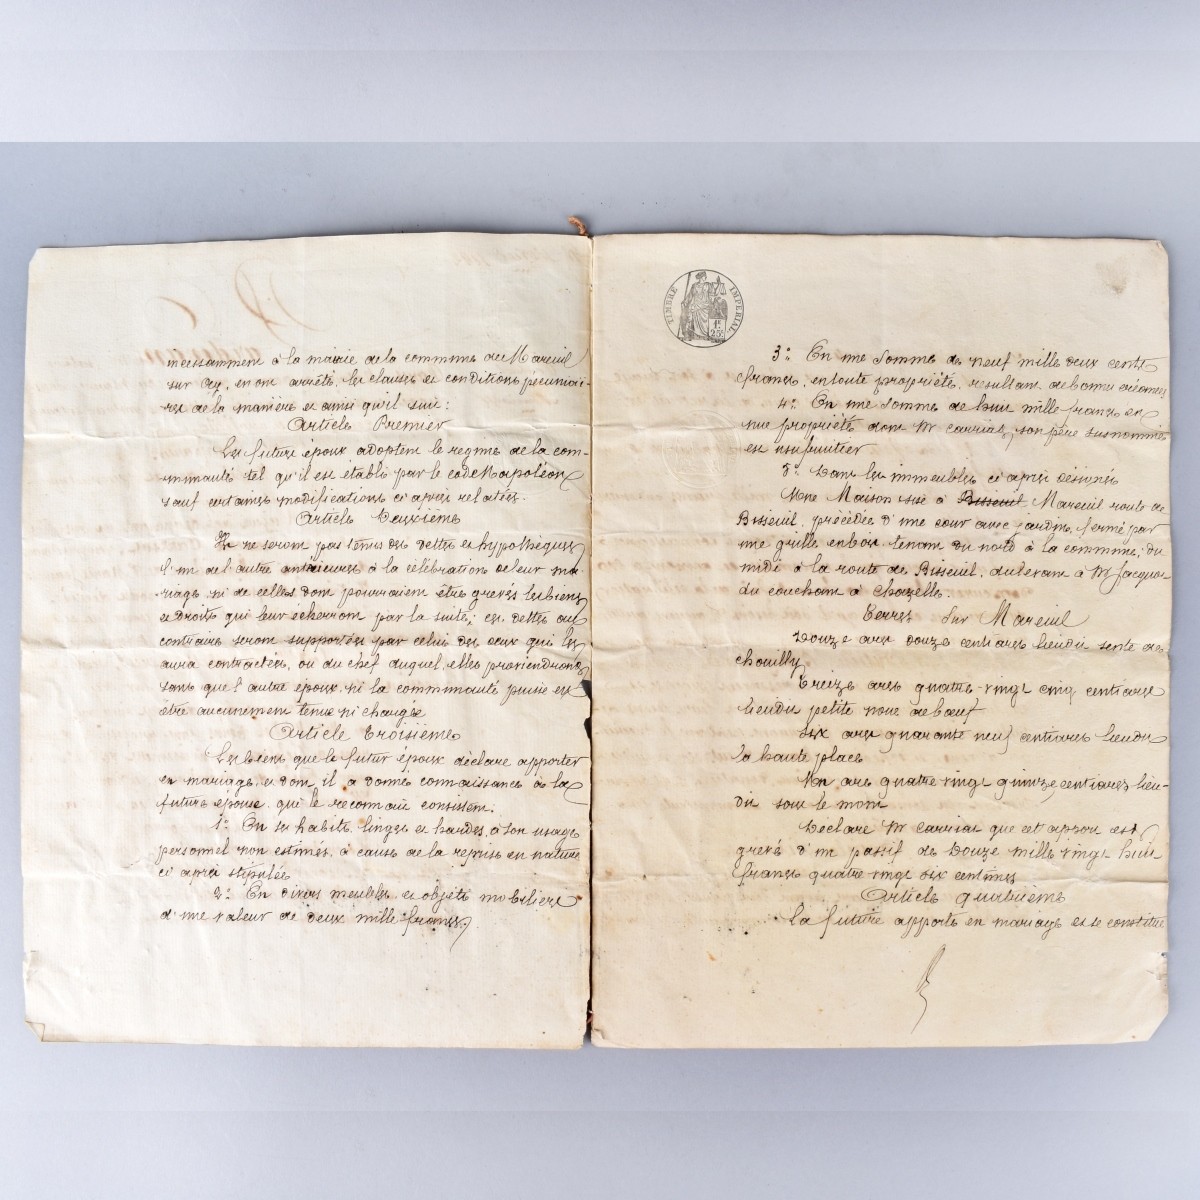 incessamment à la mairie de la commune de Mareuil
sur Ay, en ont arrêté les clauses et conditions pécuniai-
res de la manière et ainsi qu'il suit:
Article Premier
Les futurs époux adoptent le régime de la com-
munauté tel qu'il est établi par le code Napoléon
sauf certaines modifications ci après relatées.
Article Deuxième
Ils ne seront pas tenus des dettes et hypothèques
l'un de l'autre antérieures à la célébration de leur ma-
riage, ni de celles dont pourraient être grevés les biens
et Droits qui leur écherront par la suite; ces dettes au
contraire seront supportées par celui des deux qui les
aura contractées, ou du chef duquel elles proviendront
sans que l'autre époux ni la communauté puisse en
être aucunement tenue ni chargée
Article Troisième
Les biens que le futur époux déclare apporter
en mariage, et dont il a donné connaissance à la
future épouse, qui le reconnait consistent:
1° En ses habits, linges et hardes, à son usage
personnel non estimés, à cause de la reprise en nature
ci après stipulée
2° En divers meubles et objets mobiliers
d'une valeur de deux mille francs,
TIMBRE IMPERIAL
1F 25C
3° En une somme de neuf mille deux cents
francs, en toute propriété, résultant de bonnes créances
4° En une somme de huit mille francs en
nue propriété dont Mr Carriat, son père susnommé
est usufruitier
5° Dans les immeubles ci après désignés
Une Maison sise à Bisseuil Mareuil route de
Bisseuil, précédée d'une cour avec jardin, fermé par
une grille en bois, tenant du nord à la commune, du
midi à la route de Bisseuil, du levant à Mr Jacquot
du couchant à Chazelle.
Terres Sur Mareuil
Douze ares douze centiares lieudit sente de
chouilly
Treize ares quatre-vingt cinq centiares
lieudit petite noue de bœuf
Six ares quarante neuf centiares lieudit
la haute place
Un are quatre vingt quinze centiares lieu-
dit sous le mont
Déclare Mr Carriat que cet apport est
grevé d'un passif de Douze mille vingt huit
francs quatre vingt dix centimes
Article quatrième
La future apporte en mariage et se constitue